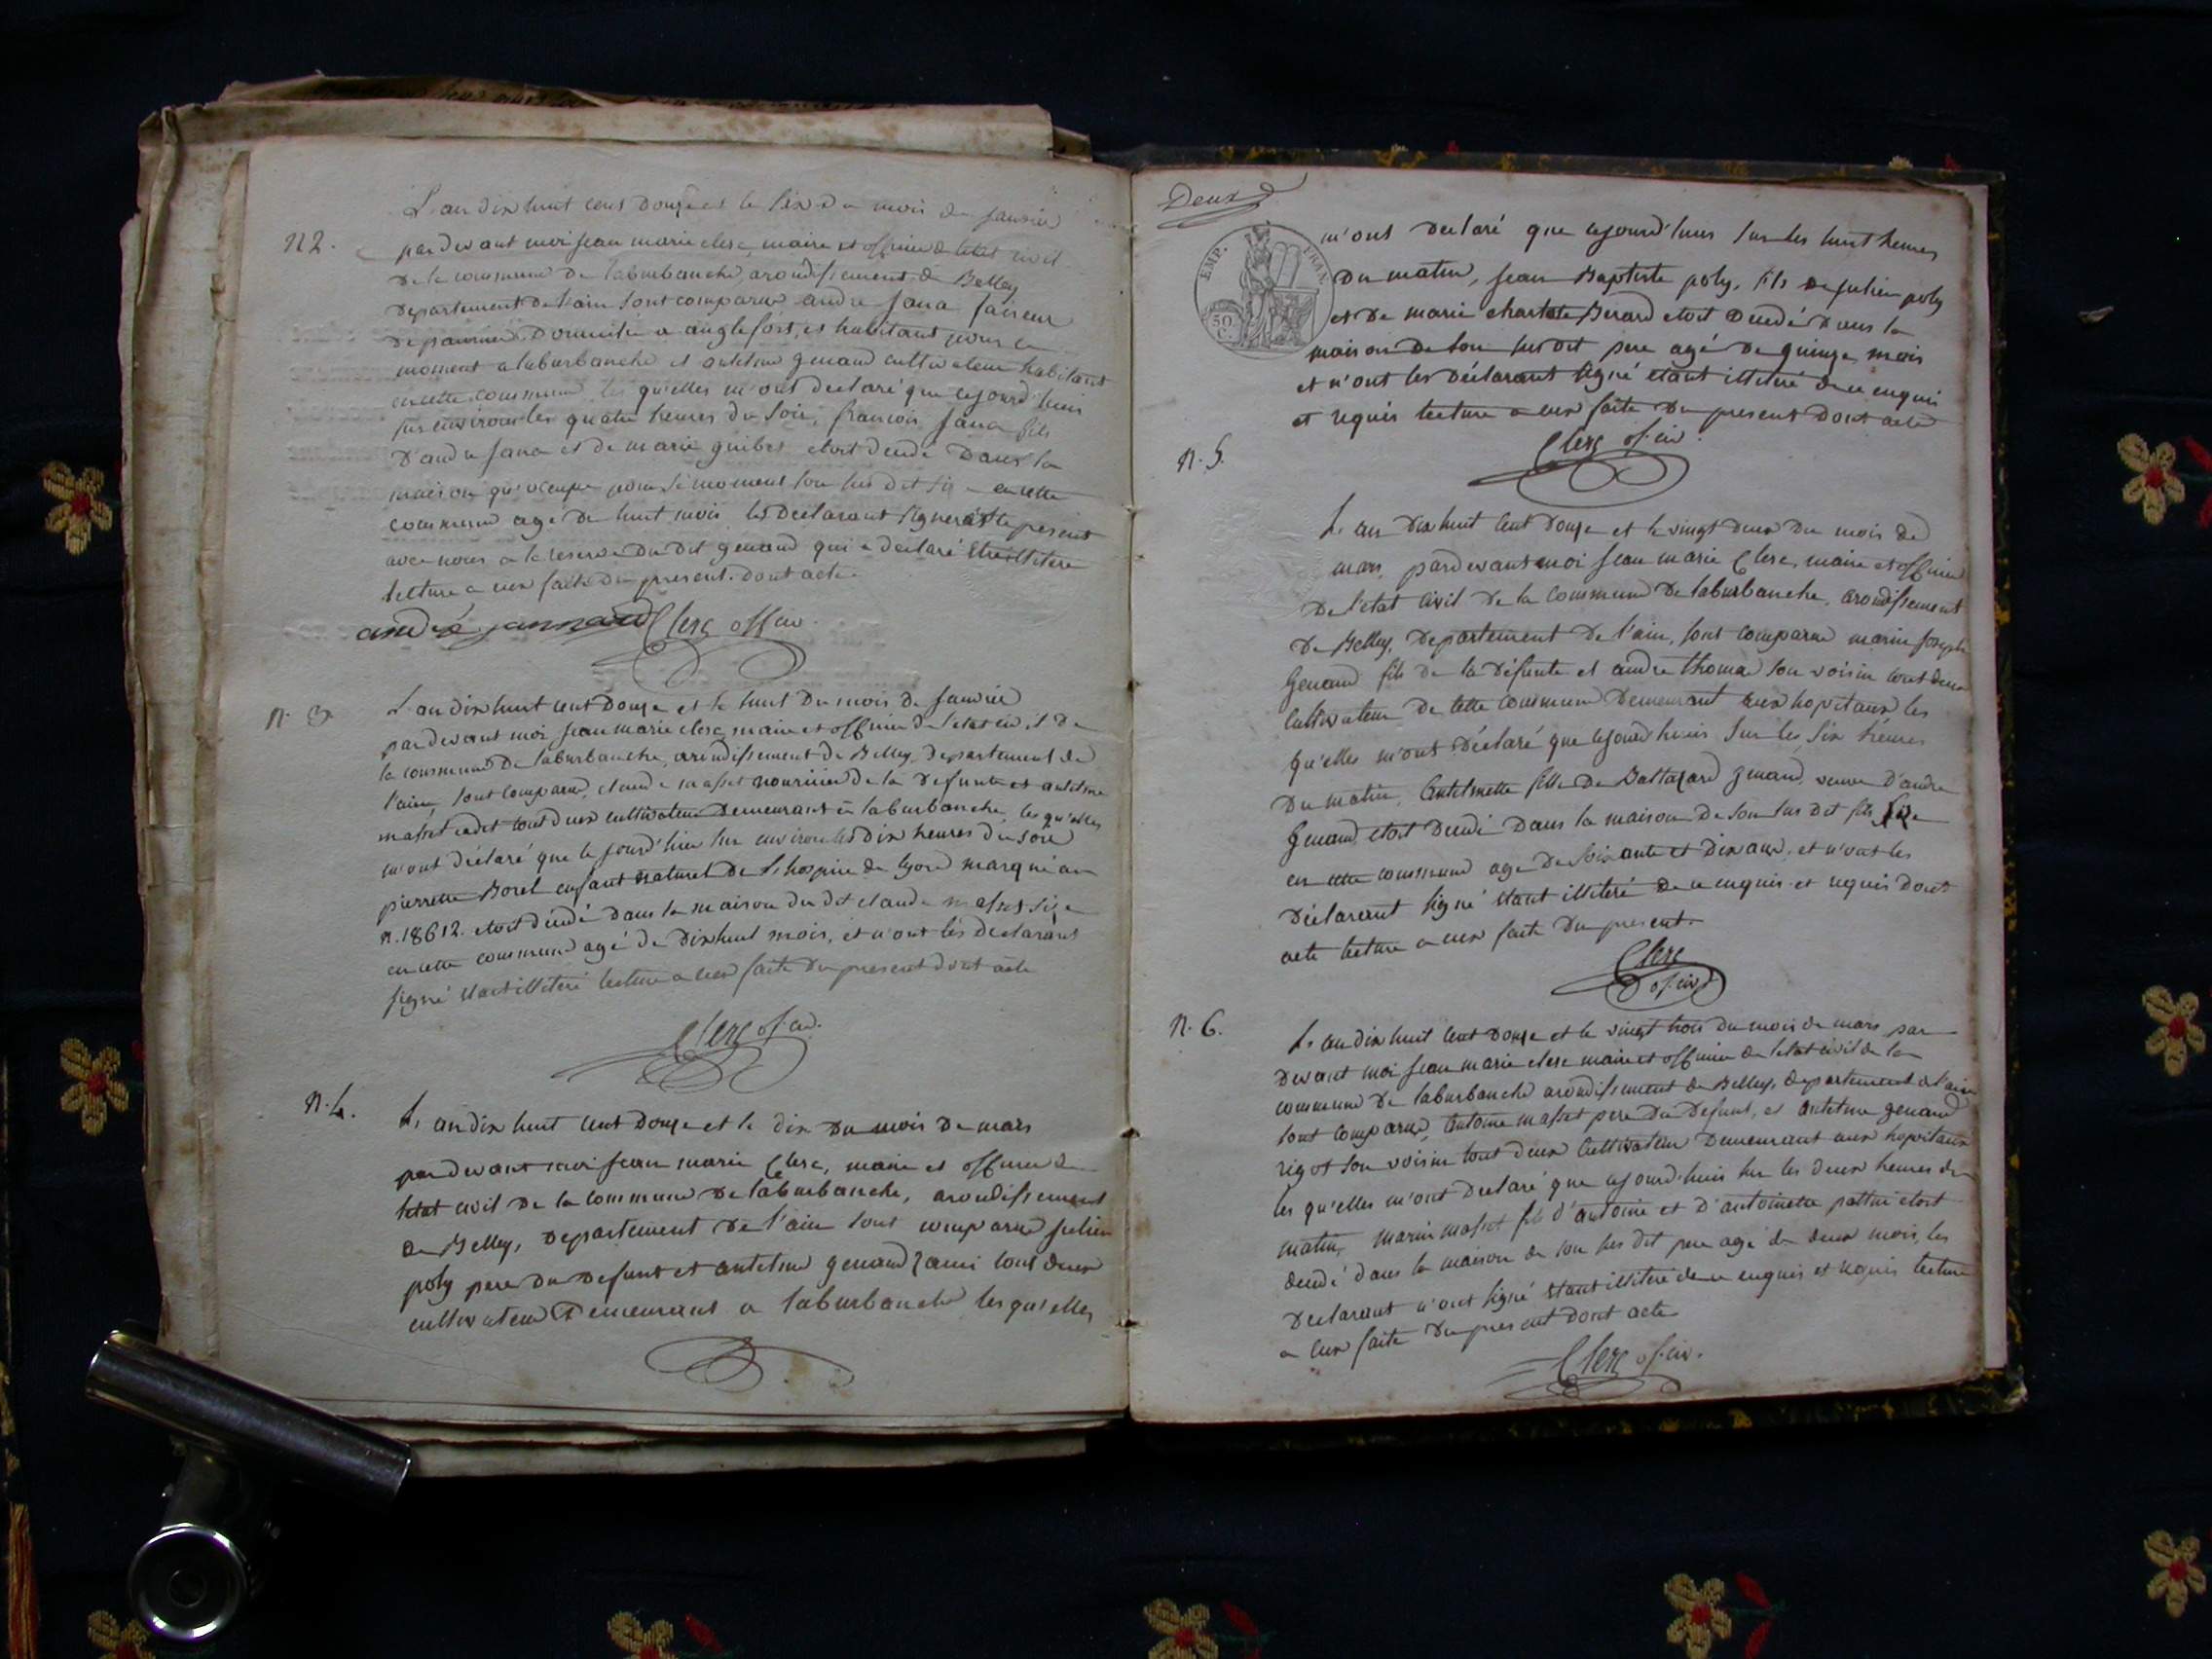 L'an dix huit cens douze et le six du mois de janvier
N 2.
par devant moi jean marie clerc, maire et officier de letat civil
de la commune de laburbanche, arondissement de Belley
departement de l'ain sont comparue andre jana faiseur
de panniers Domicilié a anglefort, et habitant pour le
moment a laburbanche et antelme genaud cultivateur habitant
en cette commune les qu'elles m'ont declaré que cejourd'huis
sur environ les quatre heures du soir, francois jana fils
d'andre jana et de marie guibet etoit decedé Dans la
maison qu'ocupe pour le moment son sus dit en cette
commune agé de huit mois les declarant signeront le present
avec nous a la reserve du dit genaud qui a declaré etre illiteré
lecture a eux faite du present. dont acte.
andré jannard Clerc off civ.
n. 3
L'an dix huit cent douze et le huit du mois de janvier
par devant moi jean marie clerc, maire et officier de l'etat civil de
la commune de laburbanche, arondissement de Belley, departement de
l'ain, sont comparue, claude masset nouricier de la defunte et antelme
masset cadet tout deux cultivateur demeurant a laburbanche, les qu'elles
m'ont déclaré que le jourd'hier sur environ les dix heures du soir
pierrette Borel enfant naturel de l'hospice de lyon marqué au
n. 18612. etoit décédé dans la maison du dit claude masset sise
en cette commune agé de dixhuit mois, et n'ont lés declarant
signé etant illiteré lecture a eux faite du present dont acte
Clerc of. civ.
n. 4.
L'an dix huit cent douze et le dix du mois de mars
par devant moi jean marie Clerc, maire et officier de
letat civil de la commune de laburbanche, arondissement
de Belley, departement de l'ain sont comparue julien
poly pere du defunt et antelme genaud zami tout deux
cultivateur Demeurant a laburbanche les qu'elles
Deux
EMP. FRAN.
50 C.
m'ont declaré que cejourd'huis sur les huit heures
du matin, jean Baptiste poly, fils de julien poly
et de marie charlote Berard etoit Decedé Dans la
maison de son susdit pere agé de quinze mois
et n'ont les déclarant signé etant illiteré de ce enquis
et requis lecture a eux faite du present dont acte
Clerc of. civ.
n. 5.
L'an dix huit cent douze et le vingt deux du mois de
mars, par devant moi jean marie Clerc, maire et officier
de l'etat civil de la commune de laburbanche, arondissement
de Belley, departement de l'ain, sont comparue marin joseph
Genaud fils de la défunte et andre thoma son voisin tout deux
Cultivateur de cette commune demeurant aux hopitaux les
qu'elles m'ont déclaré que cejourd'huis sur les six heures
du matin, Antelmette fille de Baltazard genaud, veuve d'andre
Genaud etoit decedé dans la maison de son sus dit fils sise
en cette commune agé de soixante et dix ans, et n'ont les
déclarant signé etant illiteré de ce enquis et requis dont
acte lecture a eux faite du present.
Clerc
of. civ.
n. 6.
L'an dix huit cent douze et le vingt trois du mois de mars par
devant moi jean marie clerc maire et officier de letat civil de la
commune de laburbanche arondissement de Belley, departement de l'ain
sont comparue, antoine masset pere du defunt, et antelme genaud
rigot son voisin tout deux Cultivateur demeurant aux hopitaux
les qu'elles m'ont declaré que cejourd'huis sur les deux heures du
matin, marin masset fils d'antoine et d'antoinette pattin etoit
decedé dans la maison de son sus dit pere agé de deux mois, les
declarant n'ont signé etant illiteré de ce enquis et requis lecture
a eux faite du present dont acte
Clerc of. civ.